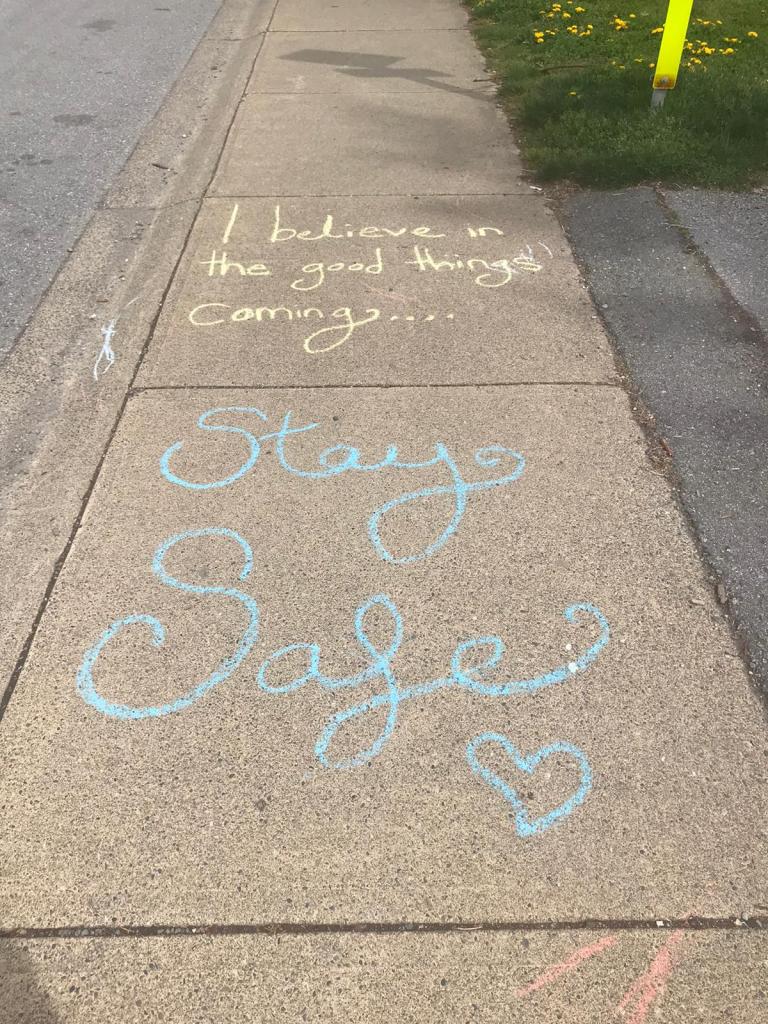 I believe in
the good things
coming....
Stay
Safe